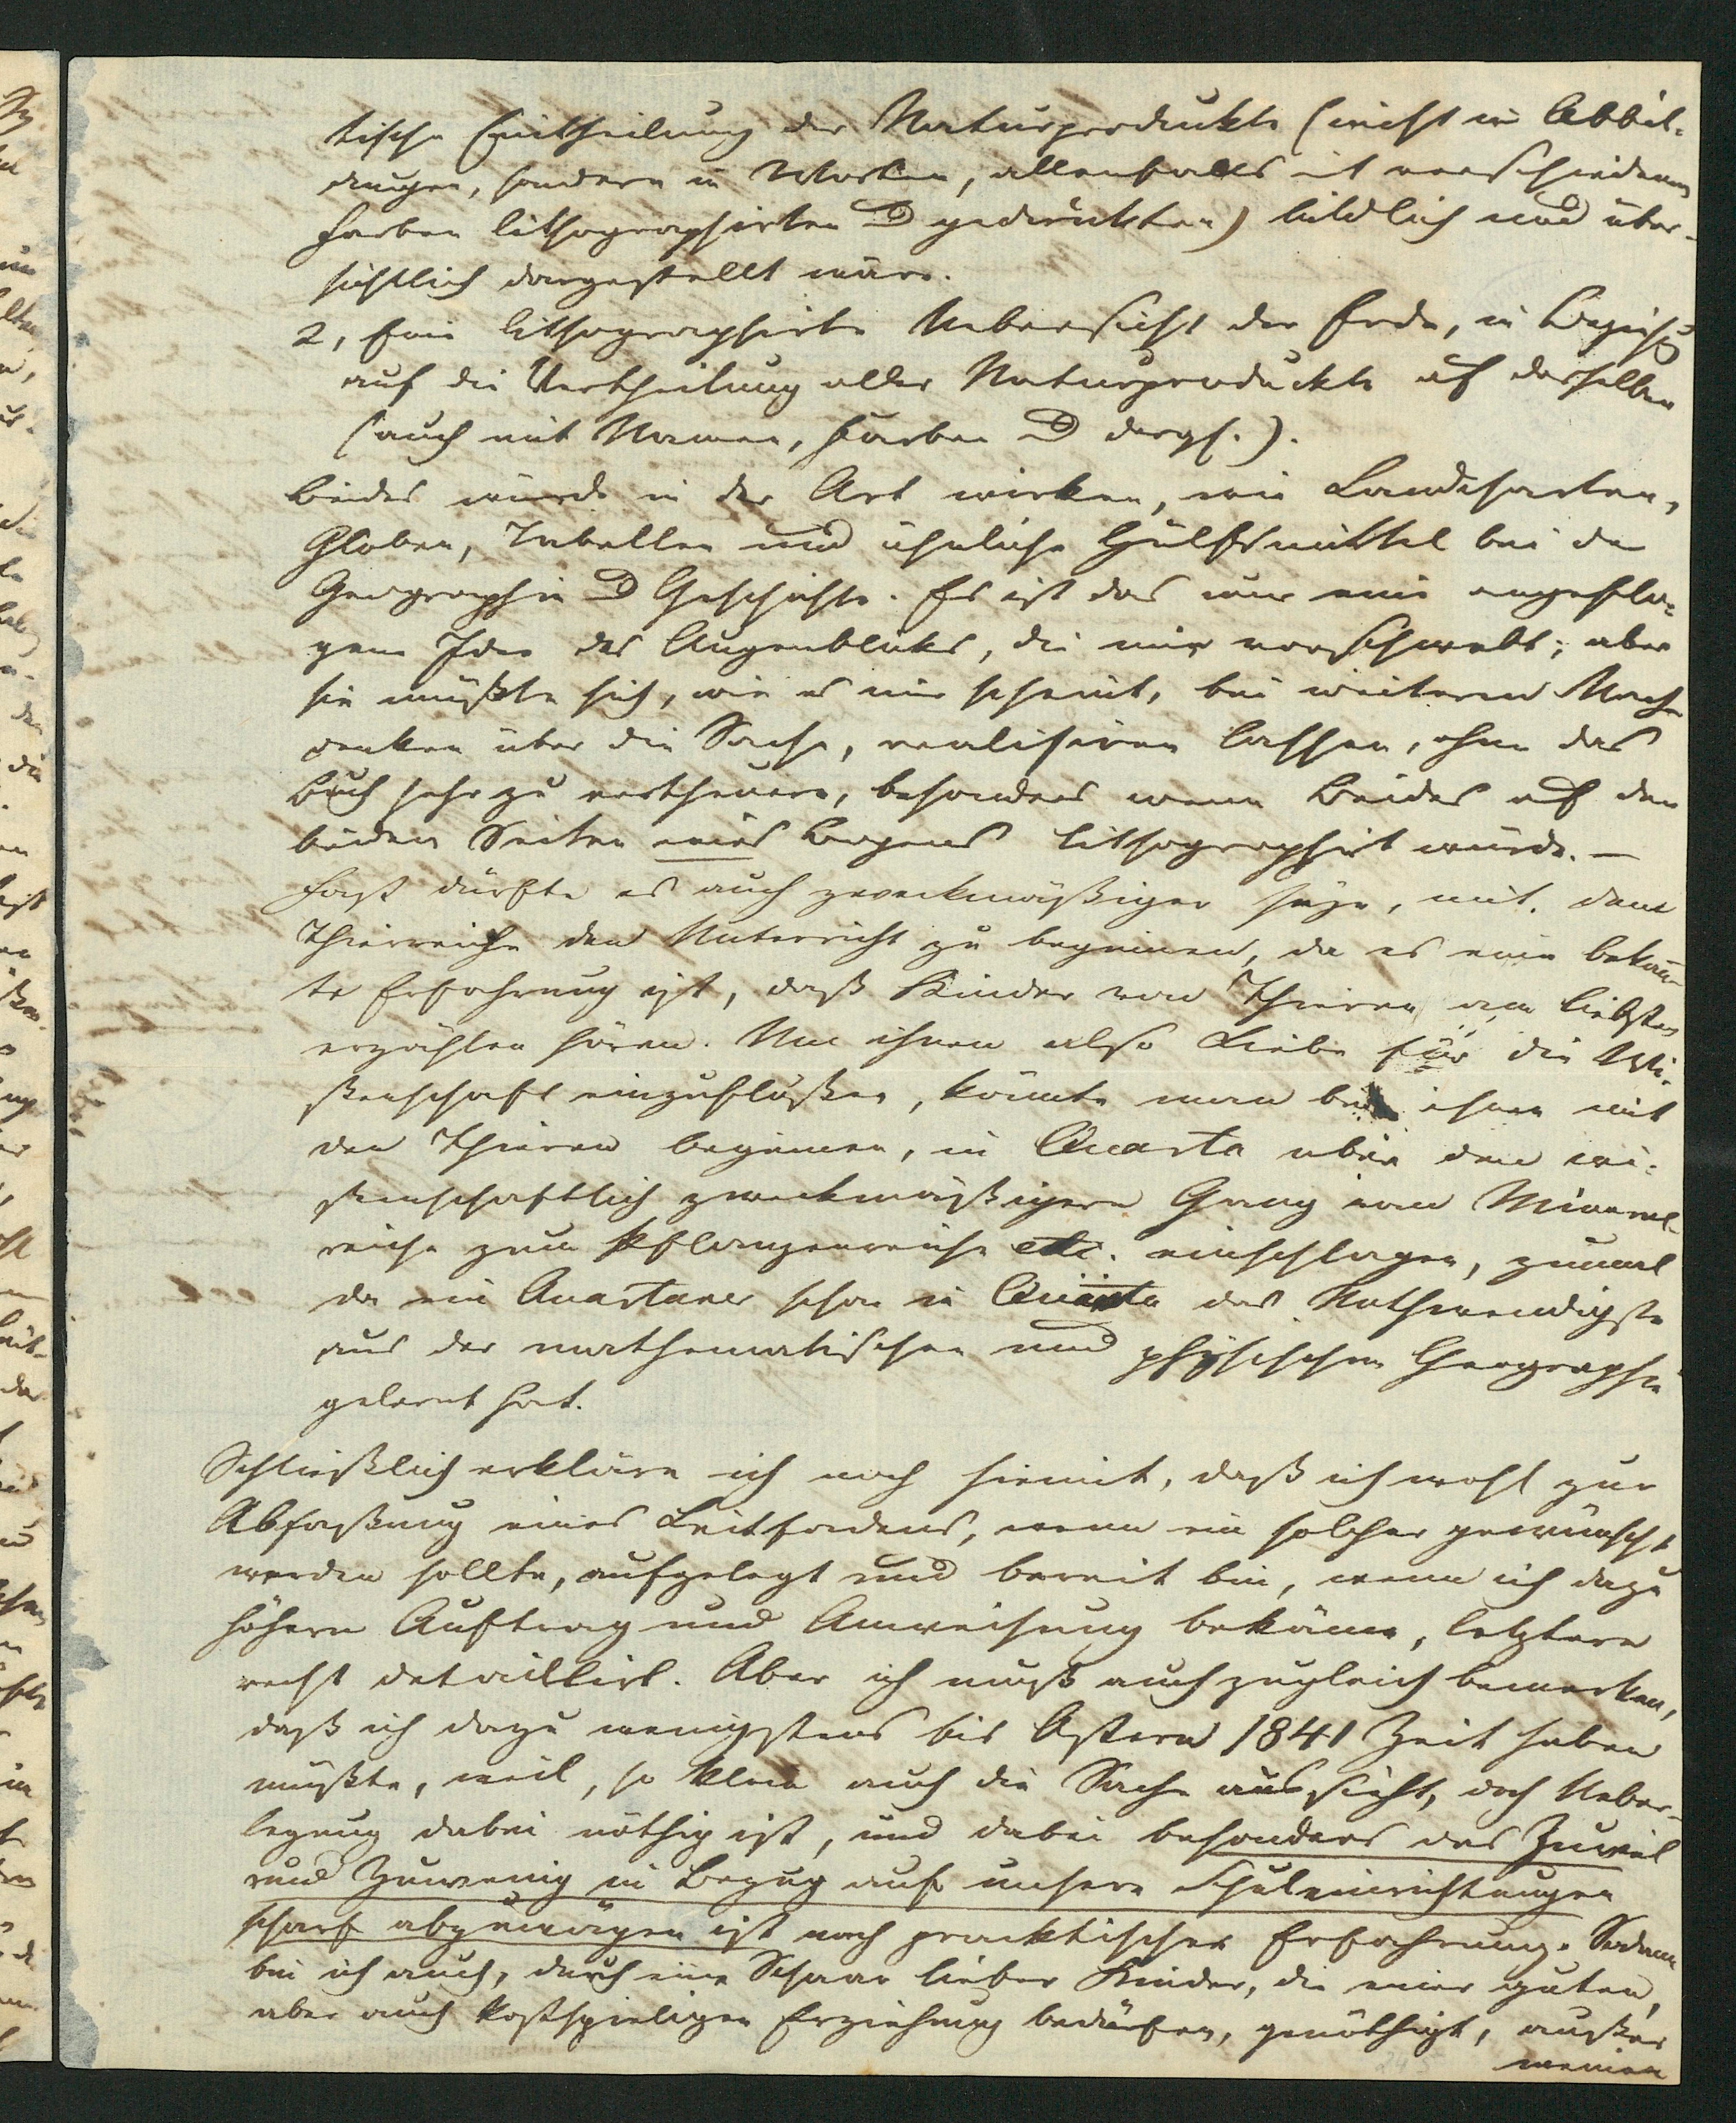 tische Eintheilung der Naturprodukte (nicht in Abbil-
dungen, sondern in Worten, allenfalls mit verschiedenen
Farben lithographirten u gedruckten) bildlich und über-
sichtlich dargestellt wäre.
2, Eine lithographirte Uebersicht der Erde, in Bezug
auf die Vertheilung aller Naturprodukte auf derselben
(auch mit Namen, Farben u dergl.).
Beides würde in der Art wirken, wie Landcharten,
Globen, Tabellen und ähnliche Hülfsmittel bei der
Geographie u Geschichte. Es ist das nur eine angeflo-
gene Idee des Augenbliks, die mir vorschwebt; aber
sie müßte sich, wie es mir scheint, bei weiterem Nach-
denken über die Sache, realisiren lassen, ohne das
Buch sehr zu vertheuern, besonders wenn Beides auf den
beiden Seiten eines Bogens lithographirt würde. —
Fast dürfte es auch zweckmäßiger seyn, mit dem
Thierreiche den Unterricht zu beginnen, da es eine bekann-
te Erfahrung ist, daß Kinder von Thieren am liebsten
erzählen hören. Um ihnen also Liebe für die Wi-
ßenschaft einzuflößen, könnte man bei ihnen mit
den Thieren beginnen, in Quarta aber den wi-
ßenschaftlich zweckmäßigern Gang vom Mineral-
reiche zum Pflanzenreiche etc. einschlagen, zumal
da ein Quartaner schon in Quinta das Nothwendigste
aus der mathematischen und physischen Geographie
gelernt hat.
Schließlich erkläre ich noch hiemit, daß ich wohl zur
Abfaßung eines Leitfadens, wenn ein solcher gewünscht
werden sollte, aufgelegt und bereit bin, wenn ich dazu
höhern Auftrag und Anweisung bekäme, letztere
recht detaillirt. Aber ich muß auch zugleich bemerken,
daß ich dazu wenigstens bis Ostern 1841 Zeit haben
müßte, weil, so klein auch die Sache aussieht, doch Ueber-
legung dabei nöthig ist, und dabei besonders das Zuviel
und Zuwenig in Bezug auf unsere Schuleinrichtungen
scharf abzuwägen ist nach praktischer Erfahrung. Sodann
bin ich auch, durch eine Schaar lieber Kinder, die einer guten,
aber auch kostspieligen Erziehung bedürfen, genöthigt, außer
meinen